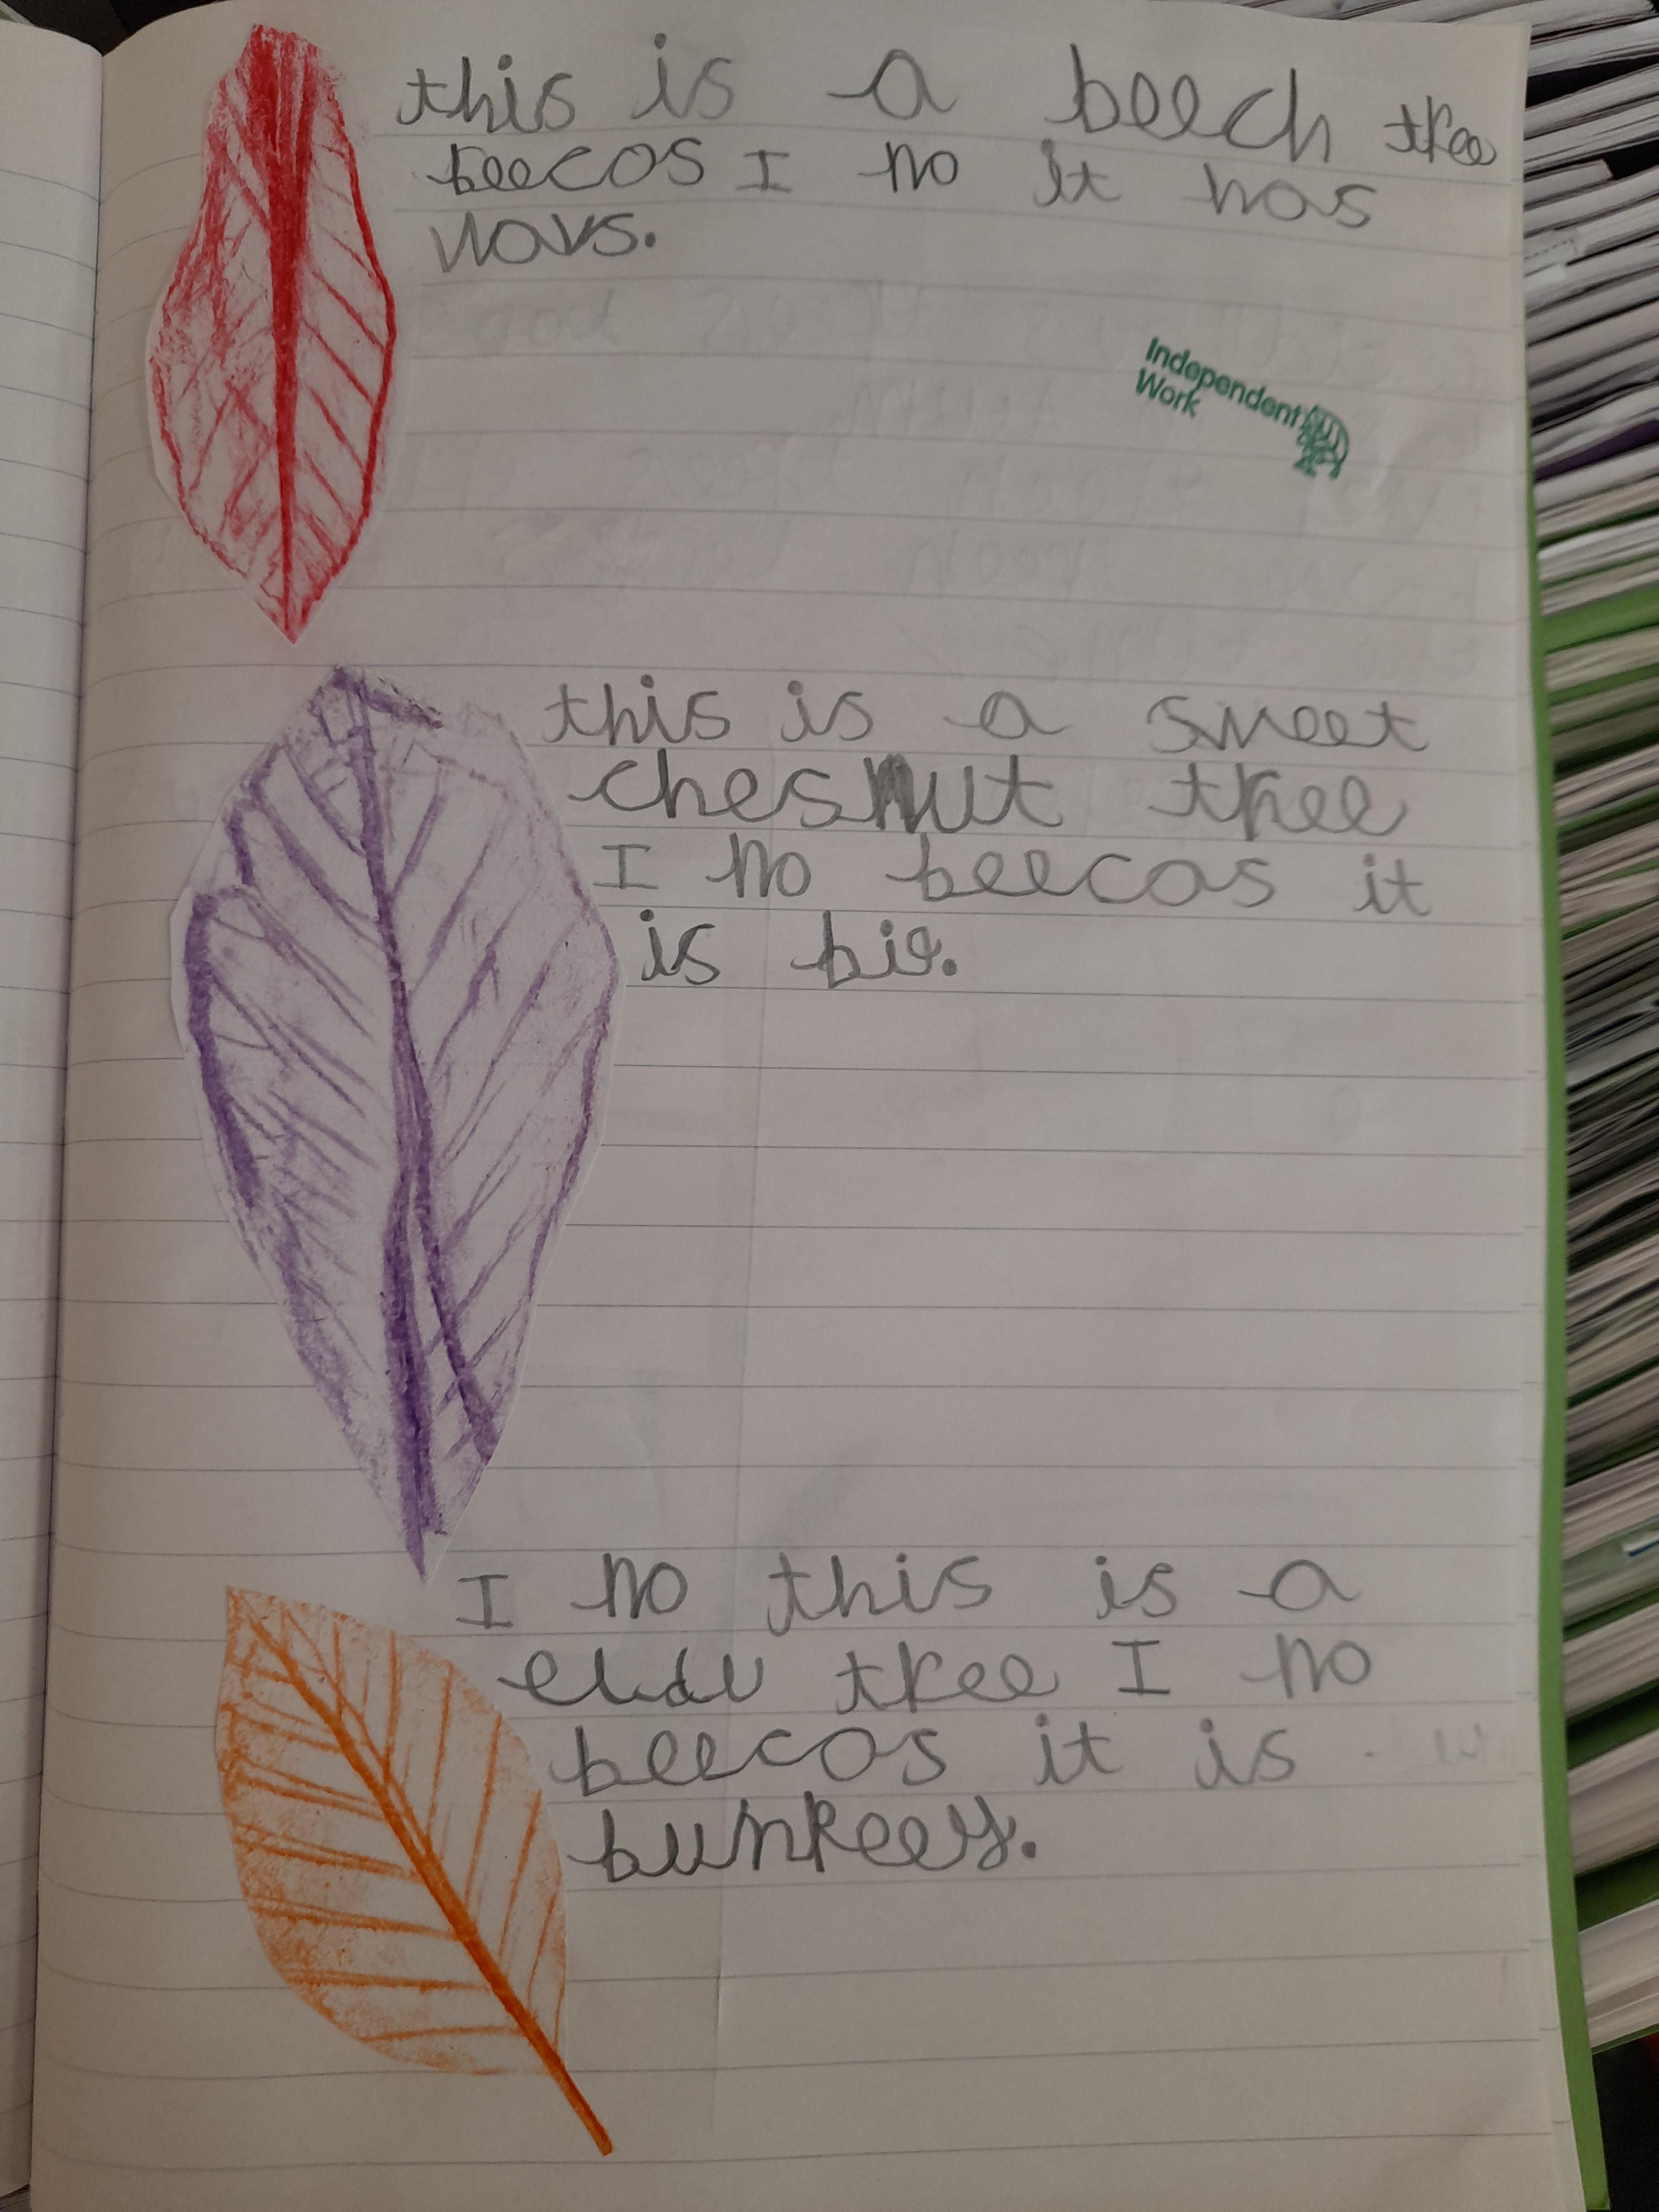 this is a beech tree
beecos I no it has
vavs.
Independent
Work
this is a sweet
chesnut tree
I no beecos it
is big.
I no this is a
eldu tree I no
beecos it is
bunkeey.